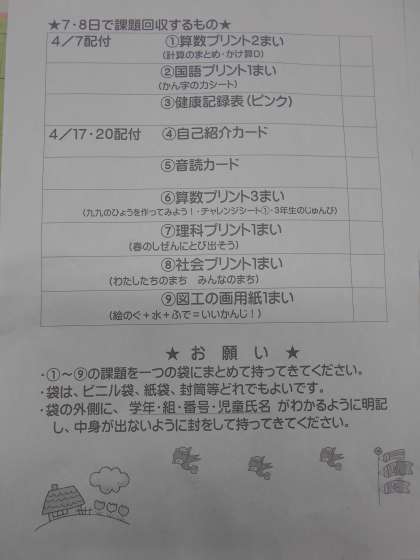 ★7・8日で課題回収するもの★
4／7配付 ①算数プリント2まい
(計算のまとめ・かけ算D)
②国語プリント1まい
(かん字の力シート)
③健康記録表(ピンク)
4／17・20配付 ④自己紹介カード
⑤音読カード
⑥算数プリント3まい
(九九のひょうを作ってみよう！・チャレンジシート①・3年生のじゅんび)
⑦理科プリント1まい
(春のしぜんにとび出そう)
⑧社会プリント1まい
(わたしたちのまち みんなのまち)
⑨図工の画用紙1まい
(絵のぐ＋水＋ふで＝いいかんじ！)
★ お 願 い ★
・①～⑨の課題を一つの袋にまとめて持ってきてください。
・袋は、ビニル袋、紙袋、封筒等どれでもよいです。
・袋の外側に、学年・組・番号・児童氏名 がわかるように明記
し、中身が出ないように封をして持ってきてください。